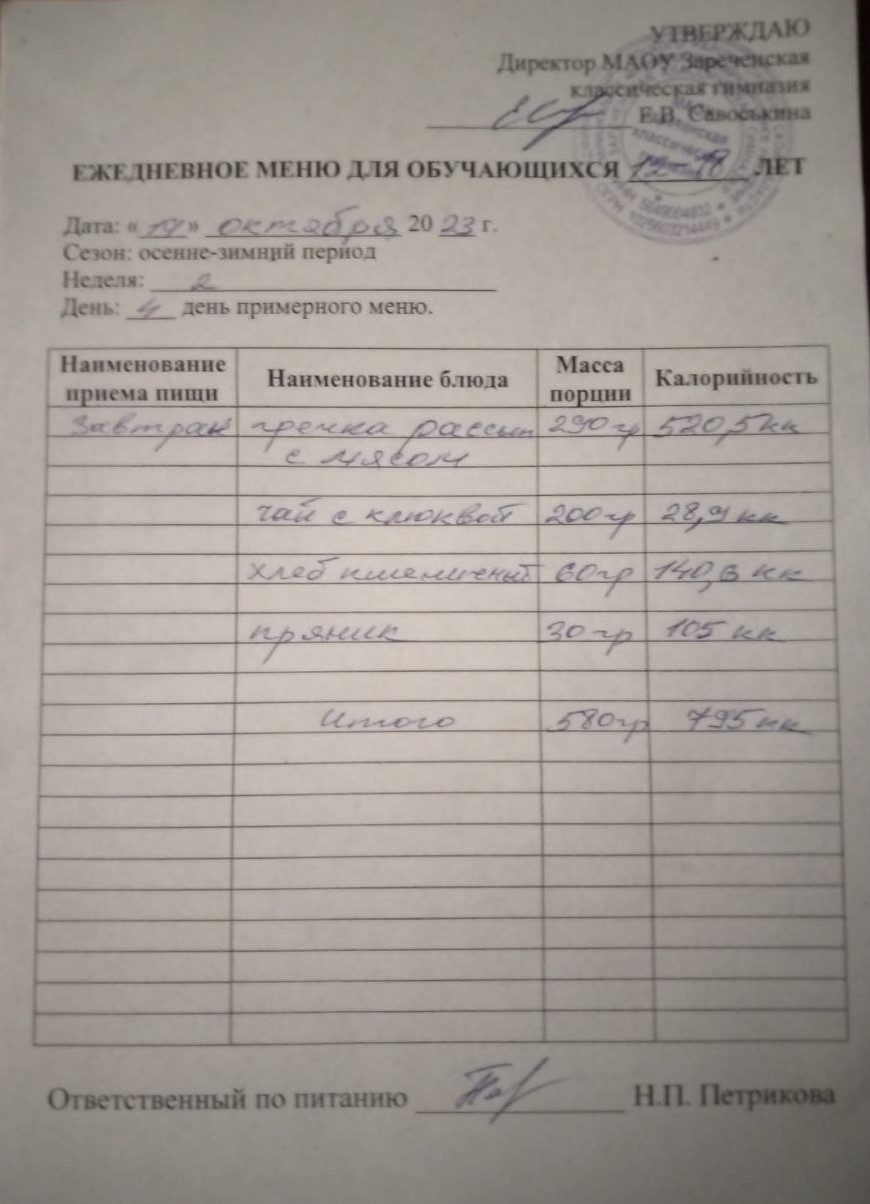 УТВЕРЖДАЮ
Директор МАОУ Зареченская
классическая гимназия
Е.В. Савоськина
ЕЖЕДНЕВНОЕ МЕНЮ ДЛЯ ОБУЧАЮЩИХСЯ 12-18 ЛЕТ
Дата: «19» октября 2023 г.
Сезон: осенне-зимний период
Неделя: 2
День: 4 день примерного меню.
Наименование приема пищи Наименование блюда Масса порции Калорийность
Завтрак гречка рассып 290 гр 520,5 кк
с мясом
чай с клюквой 200 гр 28,9 кк
хлеб пшеничный 60 гр 140,6 кк
пряник 30 гр 105 кк
Итого 580 гр 795 кк
Ответственный по питанию Н.П. Петрикова